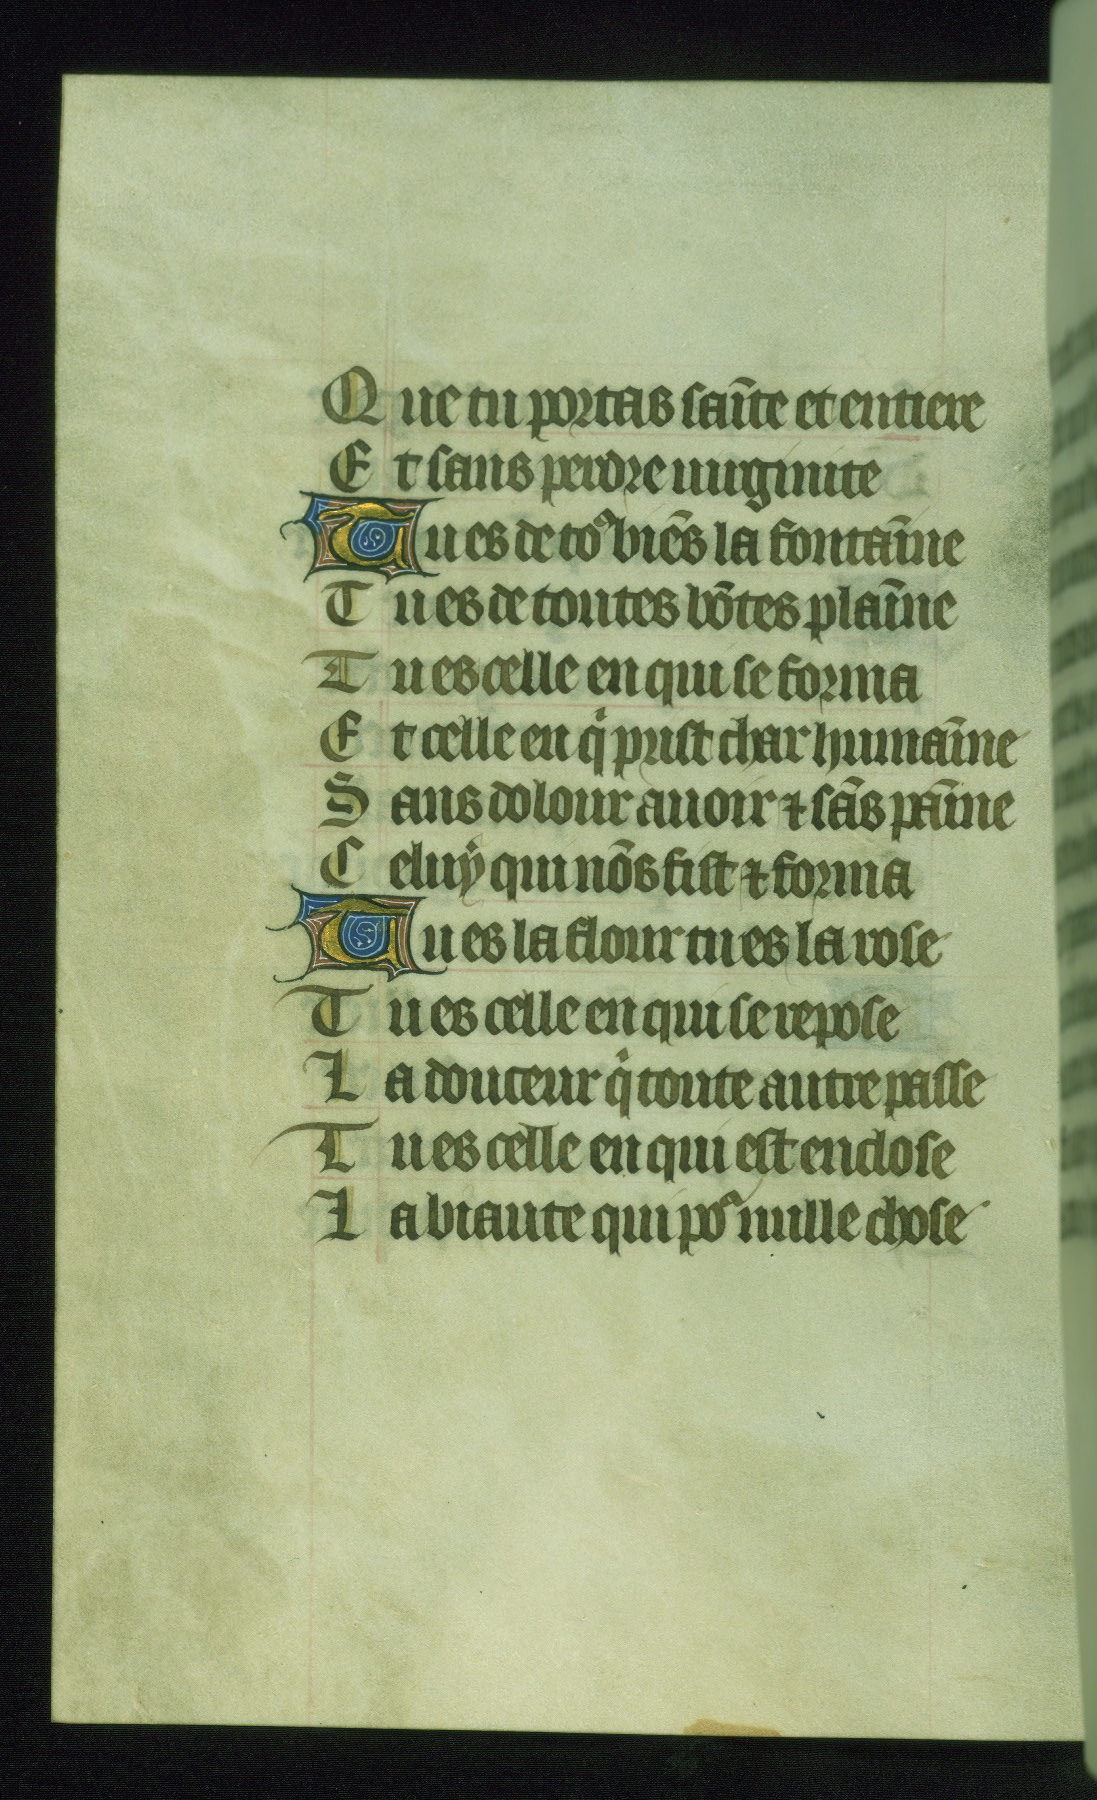 Que tu portas saīte et entiere
Et sans perdre uirginite
Tu es de toꝰ biēs la fontaīne
Tu es de toutes bōtes plaīne
Tu es celle en qui se forma
Et celle en q̇ prist char humaīne
Sans dolour auoir ⁊ sās paīne
Celuy qui nōs fist ⁊ forma
Tu es la flour tu es la rose
Tu es celle en qui se repose
La douceur q̇ toute autre passe
Tu es celle en qui est enclose
La biaute qui poꝰ nulle chose